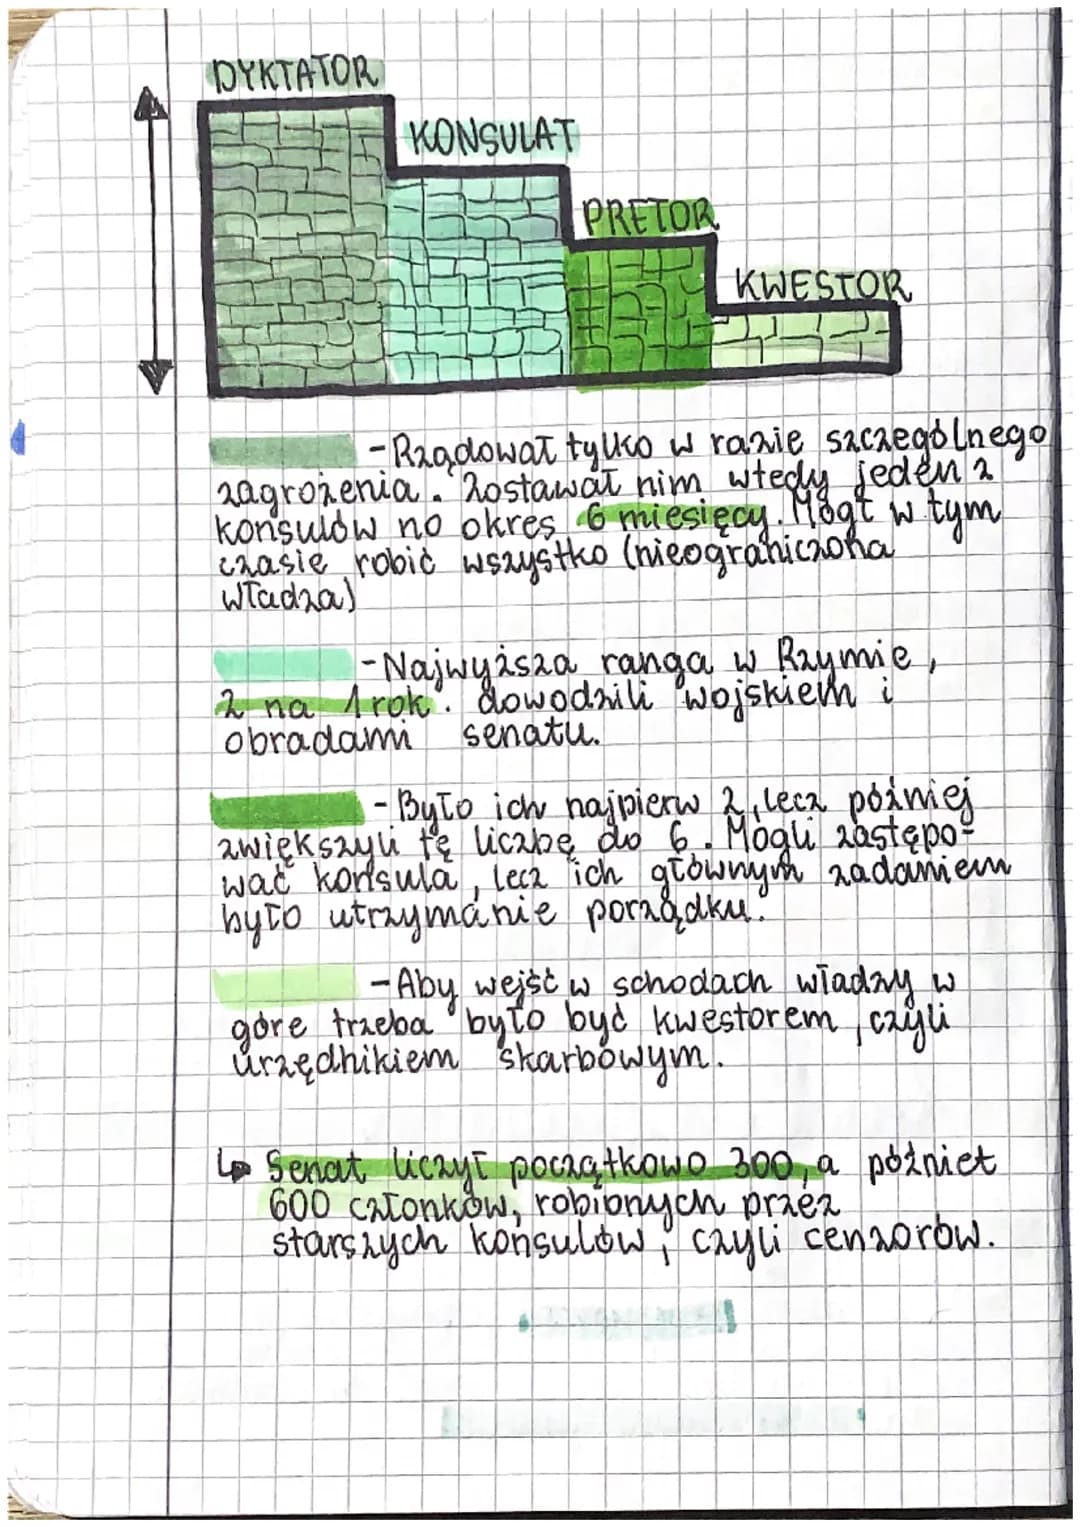 DYKTATOR
KONSULAT
PRETOR
KWESTOR
- Rządował tylko w razie szczególnego
zagrożenia. Zostawał nim wtedy jeden z
konsulów no okres 6 miesięcy. Mógł w tym
czasie robić wszystko (nieograniczona
władza)
- Najwyższa ranga w Rzymie,
2 na 1 rok. dowodzili wojskiem i
obradami senatu.
- Było ich najpierw 2, lecz później
zwiększyli tę liczbę do 6. Mogli zastępo-
wać konsula, lecz ich głównym zadaniem
było utrzymanie porządku.
- Aby wejść w schodach władzy w
górę trzeba było być kwestorem, czyli
urzędnikiem skarbowym.
↳ Senat liczył początkowo 300, a późniet
600 członków, robionych przez
starszych konsulów, czyli cenzorów.